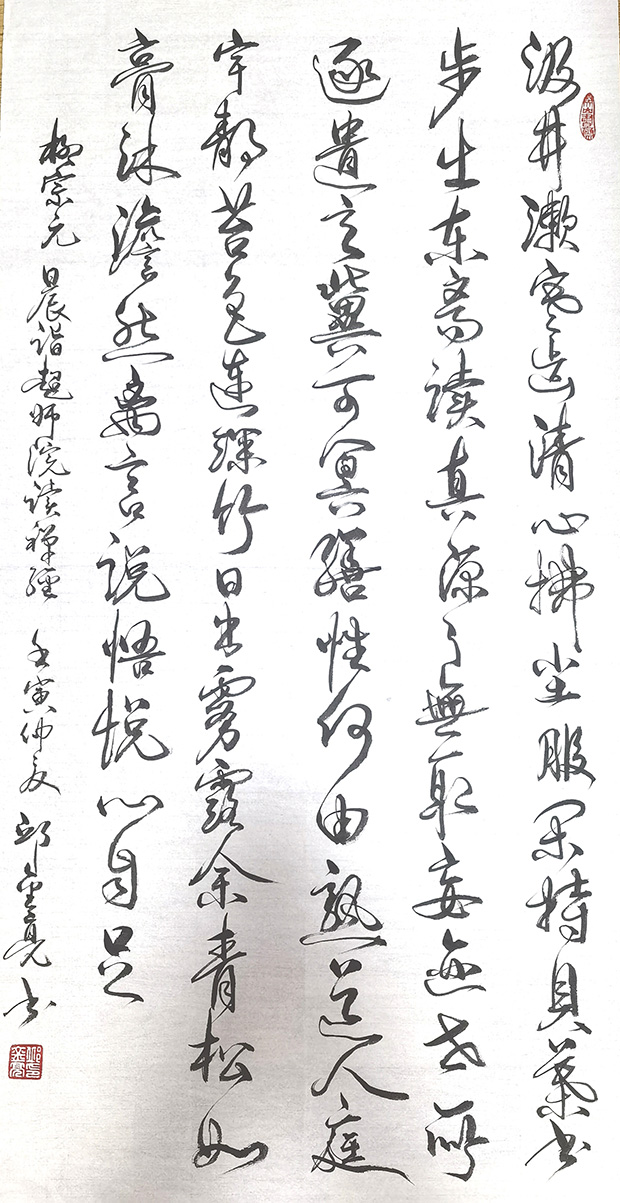 汲井漱寒齿清心拂尘服闲持貝葉书
步出东斋读真源了無取妄迹世所
逐遺言冀可冥繕性何由熟道人庭
宇静苔色连深竹日出雾露余青松如
膏沐澹然离言说悟悦心自足
柳宗元 晨诣超师院读禅經 壬寅仲夏 邱金亮书